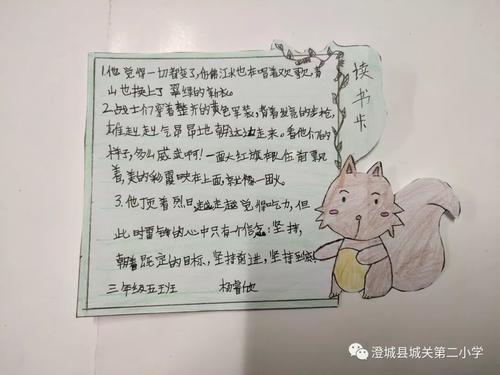 读书卡
1.他觉得一切都变了,仿佛江水也在唱着欢歌,青
山也换上了翠绿的新衣。
2.战士们穿着整齐的黄色军装,背着发亮的步枪,
雄赳赳气昂昂地朝这边走来。看他们的
样子,多么威武啊!一面大红旗
着,美的彩霞映在上面,就像一团火。
3.他顶着烈日,越走越觉得吃力,但
此时雷锋的心中只有一个信念:坚持,
朝着既定的目标,坚持前进,坚持到底!
三年级五班 杨
澄城县城关第二小学